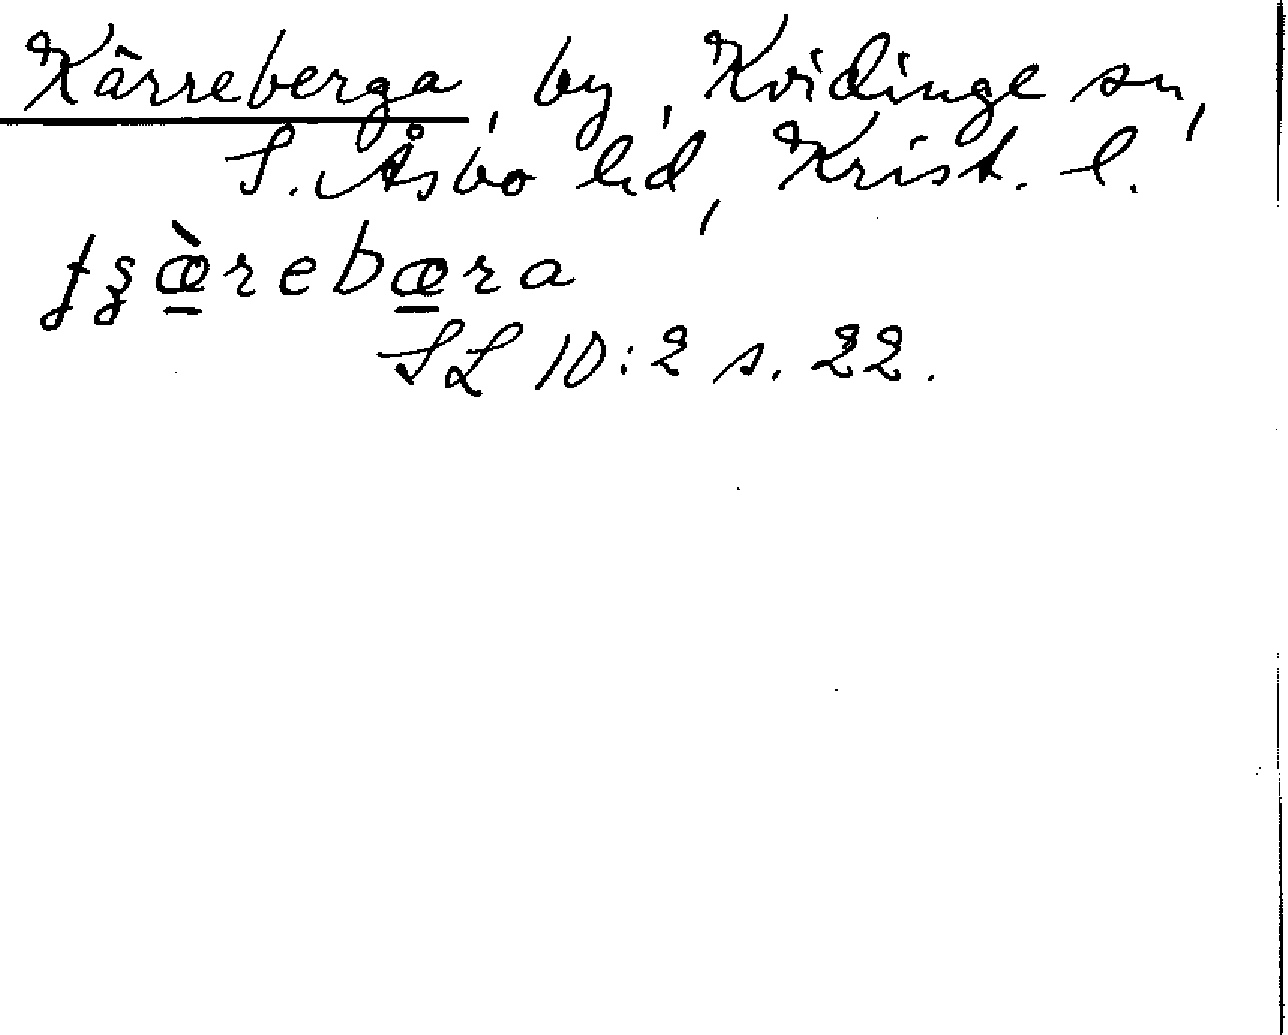 Kärreberga, by, Kvidinge sn,
S. Åsbo hd, Krist. l.
ʈʂæ̱̀rebæ̱ra
SL 10:2 s. 22.